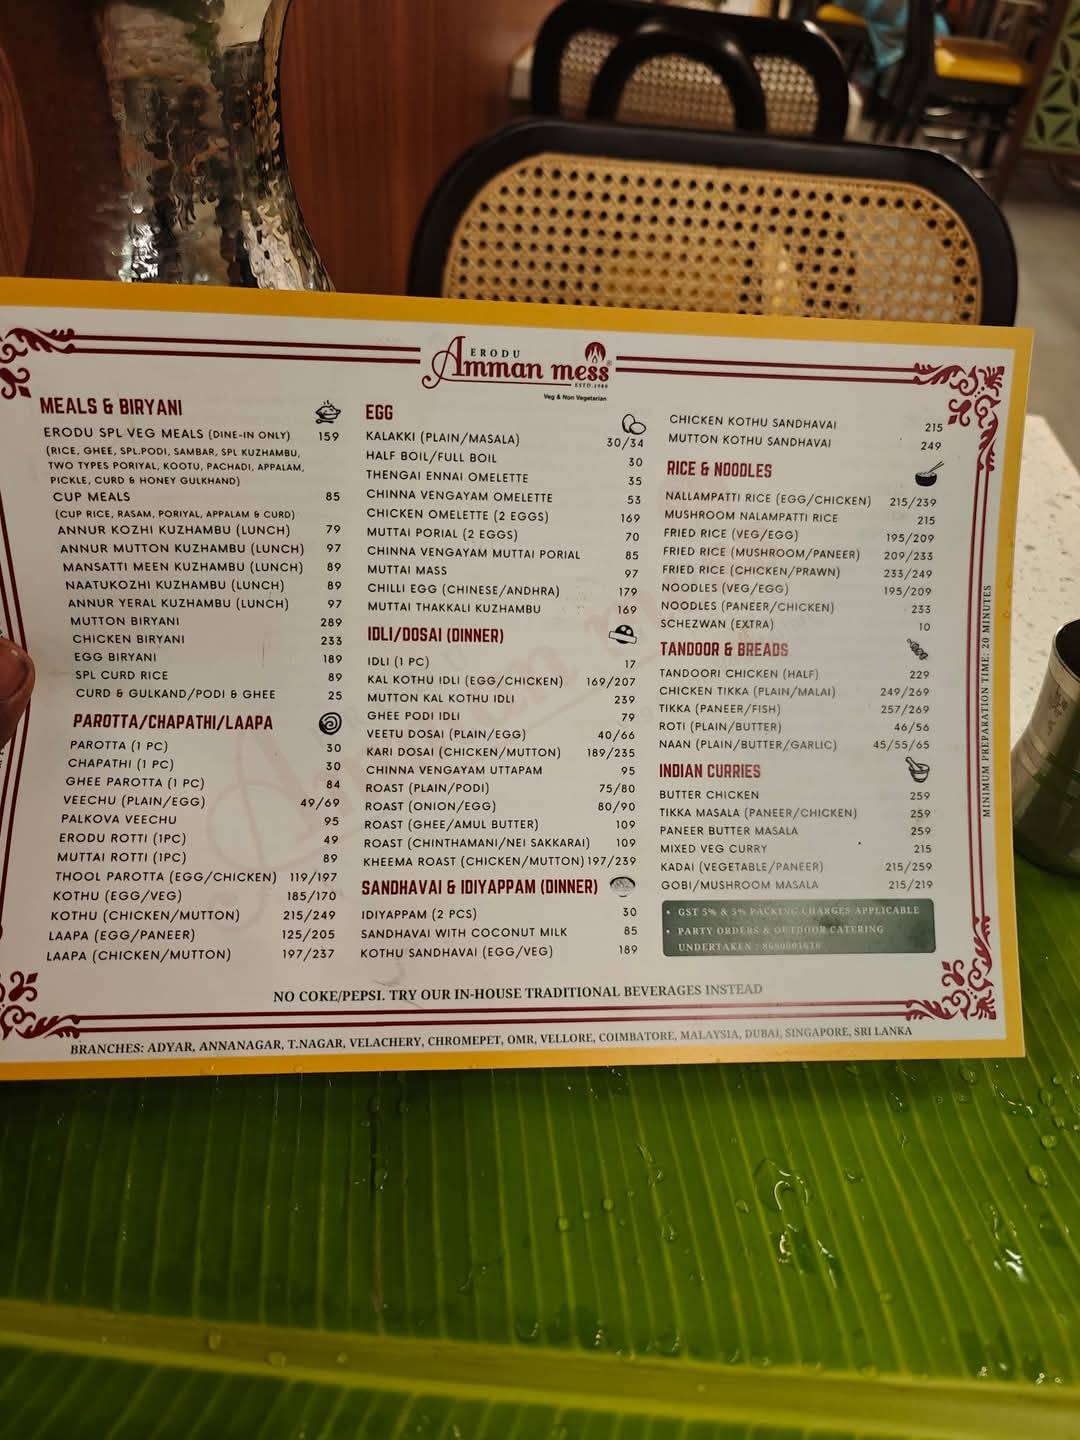 ERODU
Amman mess
ESTD.1986
Veg & Non Vegetarian
MEALS & BIRYANI
ERODU SPL VEG MEALS (DINE-IN ONLY) 159
(RICE, GHEE, SPL.PODI, SAMBAR, SPL KUZHAMBU,
TWO TYPES PORIYAL, KOOTU, PACHADI, APPALAM,
PICKLE, CURD & HONEY GULKHAND)
CUP MEALS 85
(CUP RICE, RASAM, PORIYAL, APPALAM & CURD)
ANNUR KOZHI KUZHAMBU (LUNCH) 79
ANNUR MUTTON KUZHAMBU (LUNCH) 97
MANSATTI MEEN KUZHAMBU (LUNCH) 89
NAATUKOZHI KUZHAMBU (LUNCH) 89
ANNUR YERAL KUZHAMBU (LUNCH) 97
MUTTON BIRYANI 289
CHICKEN BIRYANI 233
EGG BIRYANI 189
SPL CURD RICE 89
CURD & GULKAND/PODI & GHEE 25
PAROTTA/CHAPATHI/LAAPA
PAROTTA (1 PC) 30
CHAPATHI (1 PC) 30
GHEE PAROTTA (1 PC) 84
VEECHU (PLAIN/EGG) 49/69
PALKOVA VEECHU 95
ERODU ROTTI (1PC) 49
MUTTAI ROTTI (1PC) 89
THOOL PAROTTA (EGG/CHICKEN) 119/197
KOTHU (EGG/VEG) 185/170
KOTHU (CHICKEN/MUTTON) 215/249
LAAPA (EGG/PANEER) 125/205
LAAPA (CHICKEN/MUTTON) 197/237
EGG
KALAKKI (PLAIN/MASALA) 30/34
HALF BOIL/FULL BOIL 30
THENGAI ENNAI OMELETTE 35
CHINNA VENGAYAM OMELETTE 53
CHICKEN OMELETTE (2 EGGS) 169
MUTTAI PORIAL (2 EGGS) 70
CHINNA VENGAYAM MUTTAI PORIAL 85
MUTTAI MASS 97
CHILLI EGG (CHINESE/ANDHRA) 179
MUTTAI THAKKALI KUZHAMBU 169
IDLI/DOSAI (DINNER)
IDLI (1 PC) 17
KAL KOTHU IDLI (EGG/CHICKEN) 169/207
MUTTON KAL KOTHU IDLI 239
GHEE PODI IDLI 79
VEETU DOSAI (PLAIN/EGG) 40/66
KARI DOSAI (CHICKEN/MUTTON) 189/235
CHINNA VENGAYAM UTTAPAM 95
ROAST (PLAIN/PODI) 75/80
ROAST (ONION/EGG) 80/90
ROAST (GHEE/AMUL BUTTER) 109
ROAST (CHINTHAMANI/NEI SAKKARAI) 109
KHEEMA ROAST (CHICKEN/MUTTON) 197/239
SANDHAVAI & IDIYAPPAM (DINNER)
IDIYAPPAM (2 PCS) 30
SANDHAVAI WITH COCONUT MILK 85
KOTHU SANDHAVAI (EGG/VEG) 189
CHICKEN KOTHU SANDHAVAI 215
MUTTON KOTHU SANDHAVAI 249
RICE & NOODLES
NALLAMPATTI RICE (EGG/CHICKEN) 215/239
MUSHROOM NALAMPATTI RICE 215
FRIED RICE (VEG/EGG) 195/209
FRIED RICE (MUSHROOM/PANEER) 209/233
FRIED RICE (CHICKEN/PRAWN) 233/249
NOODLES (VEG/EGG) 195/209
NOODLES (PANEER/CHICKEN) 233
SCHEZWAN (EXTRA) 10
TANDOOR & BREADS
TANDOORI CHICKEN (HALF) 229
CHICKEN TIKKA (PLAIN/MALAI) 249/269
TIKKA (PANEER/FISH) 257/269
ROTI (PLAIN/BUTTER) 46/56
NAAN (PLAIN/BUTTER/GARLIC) 45/55/65
INDIAN CURRIES
BUTTER CHICKEN 259
TIKKA MASALA (PANEER/CHICKEN) 259
PANEER BUTTER MASALA 259
MIXED VEG CURRY 215
KADAI (VEGETABLE/PANEER) 215/259
GOBI/MUSHROOM MASALA 215/219
• GST 5% & 5% PACKING CHARGES APPLICABLE
• PARTY ORDERS & OUTDOOR CATERING
UNDERTAKEN :
MINIMUM PREPARATION TIME: 20 MINUTES
NO COKE/PEPSI. TRY OUR IN-HOUSE TRADITIONAL BEVERAGES INSTEAD
BRANCHES: ADYAR, ANNANAGAR, T.NAGAR, VELACHERY, CHROMEPET, OMR, VELLORE, COIMBATORE, MALAYSIA, DUBAI, SINGAPORE, SRI LANKA